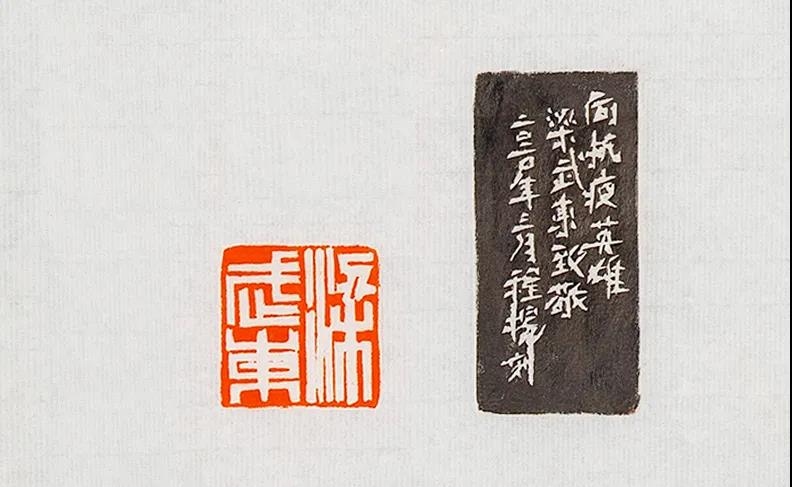 梁
武東
向抗疫英雄
梁武東致敬
二〇二〇年三月程刻